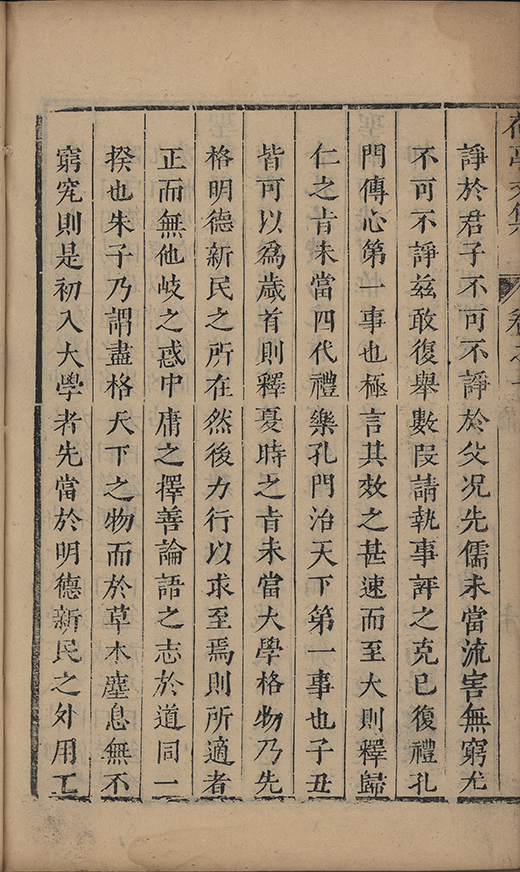 諍於君子不可不諍於父况先儒未當流害無窮尤
不可不諍兹敢復舉數段請執事評之克已復禮孔
門傳心第一事也極言其效之甚速而至大則釋歸
仁之旨未當四代禮樂孔門治天下第一事也子丑
皆可以爲歲首則釋夏時之旨未當大學格物乃先
格明德新民之所在然後力行以求至焉則所適者
正而無他岐之惑中庸之擇善論語之志於道同一
揆也朱子乃謂盡格天下之物而於草木塵息無不
窮究則是初入大學者先當於明德新民之外用工